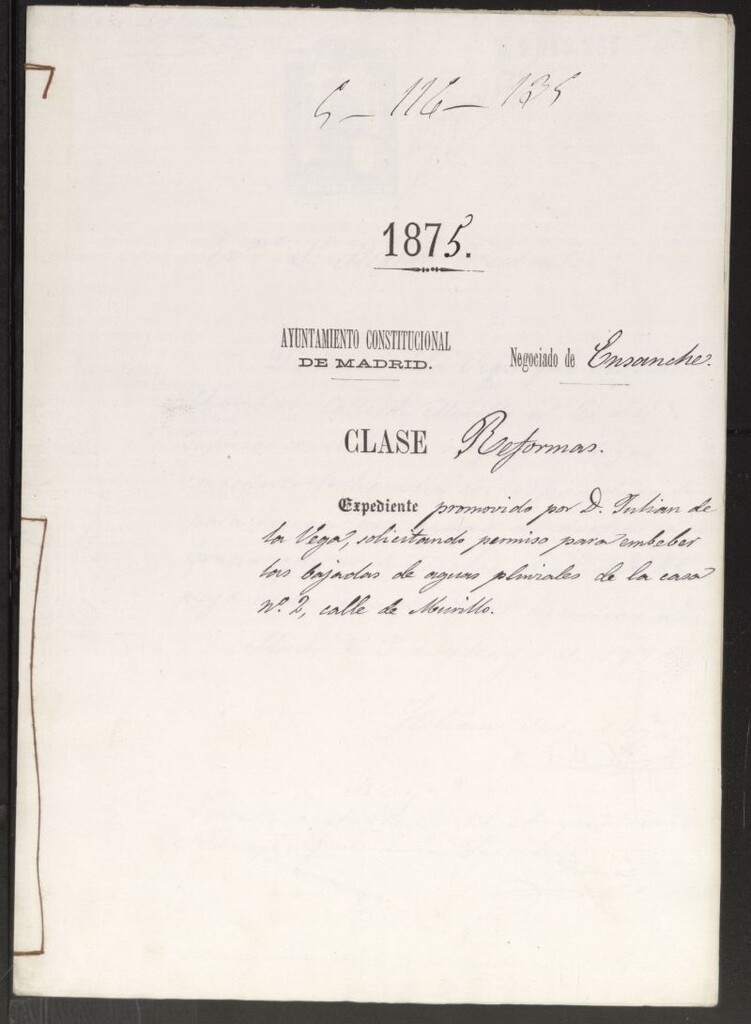 5-116-135
1875.
AYUNTAMIENTO CONSTITUCIONAL
DE MADRID.
Negociado de Ensanche.
CLASE Reformas.
Expediente promovido por D. Julian de
la Vega, solicitando permiso para embeber
las bajadas de aguas pluviales de la casa
nº. 2, calle de Murillo.